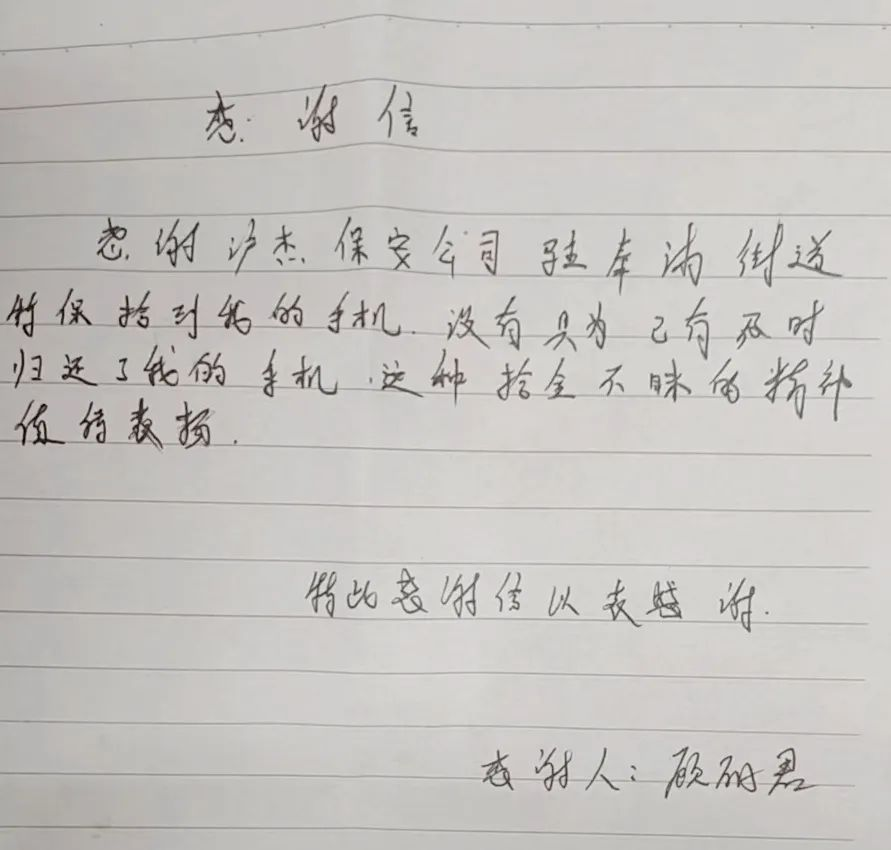 感谢信
感谢沪杰保安公司驻奉浦街道
特保拾到我的手机.没有具为己有及时
归还了我的手机.这种拾金不昧的精神
值得表扬.
特此感谢信以表感谢.
感谢人:顾